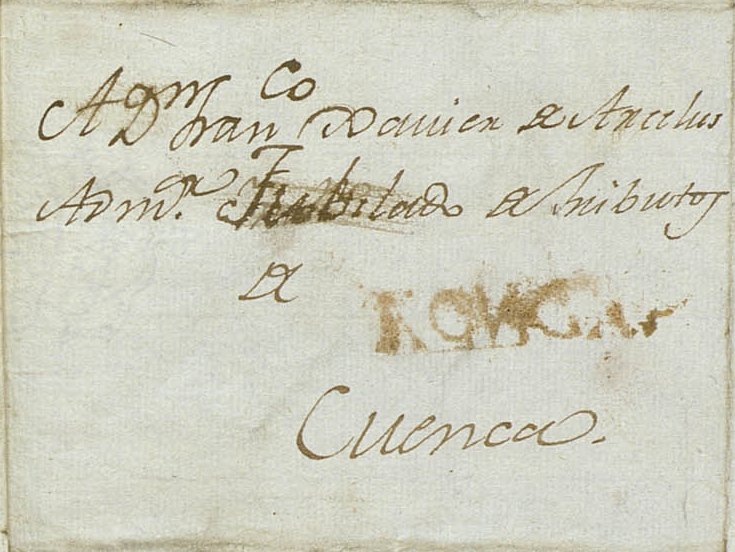 A Dn Franco Xavier de Arcelus
Admor. Jubilado de tributos
de
Cuenca.